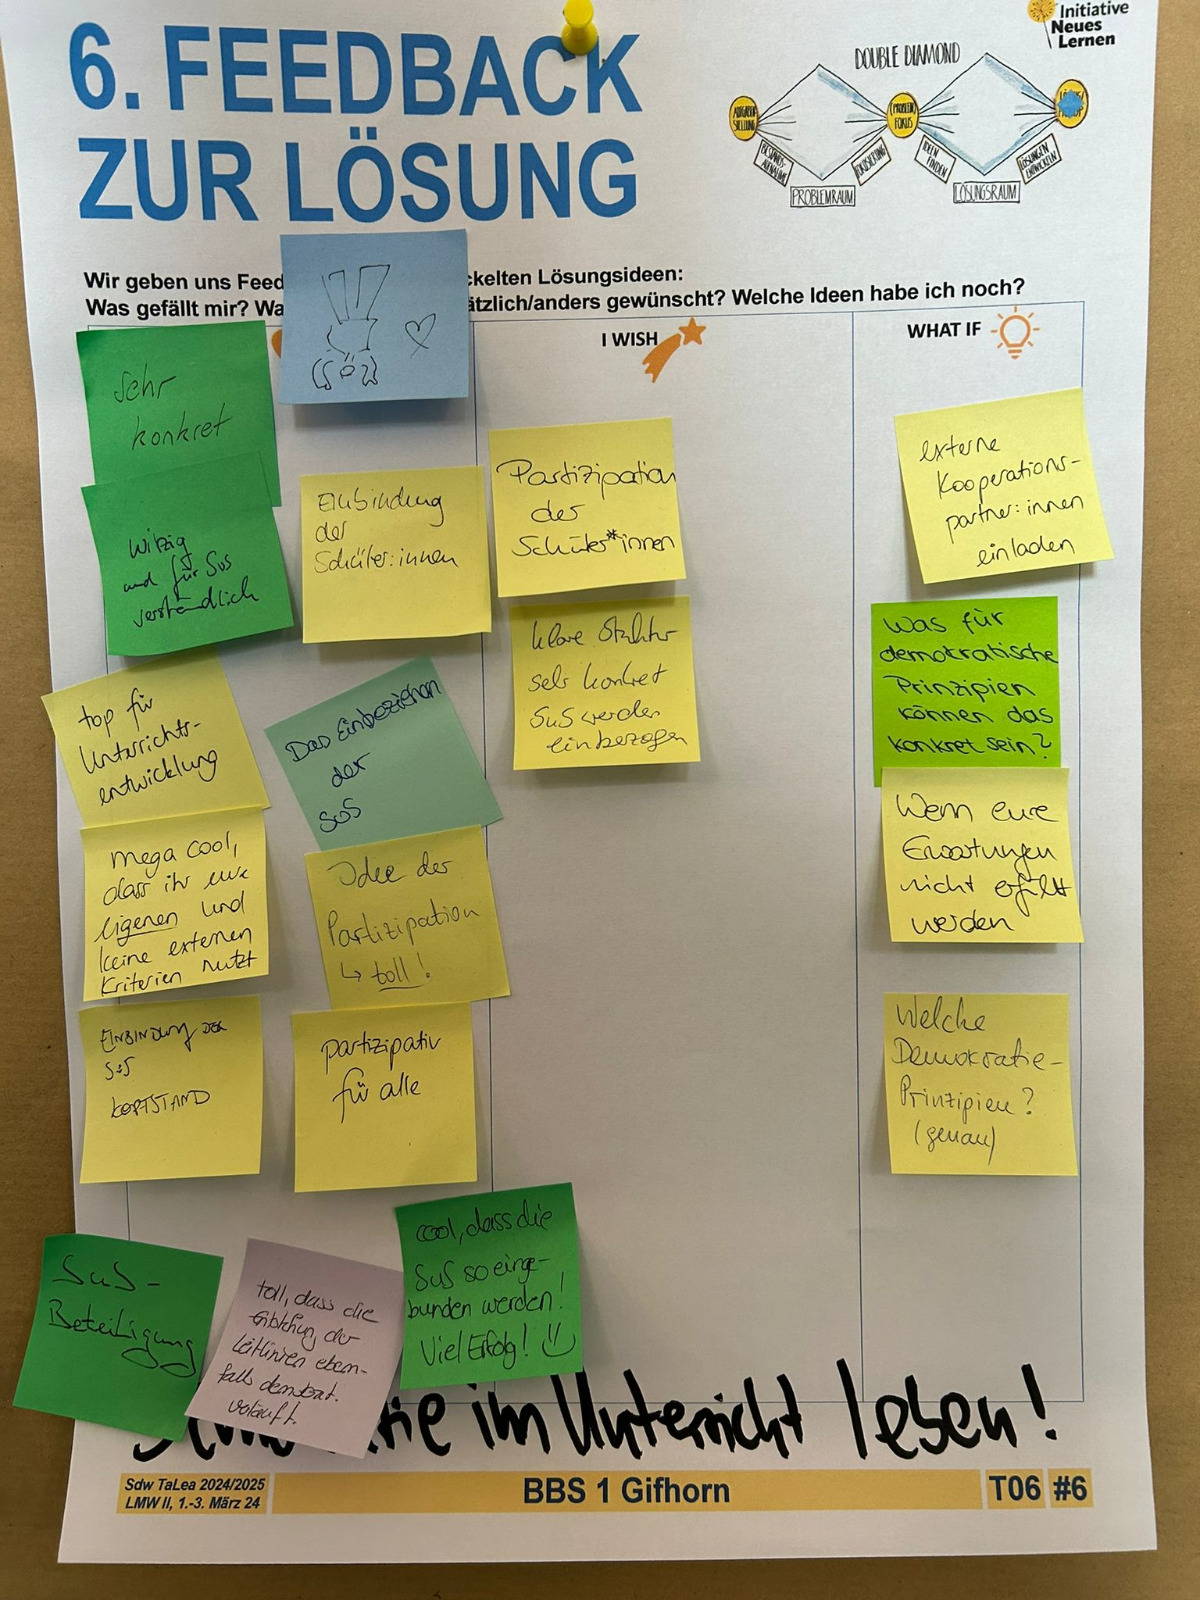 6. FEEDBACK
ZUR LÖSUNG
Initiative
Neues
Lernen
DOUBLE DIAMOND
AUFGABEN
STELLUNG
BESTANDS-
AUFNAHME
FOKUSSIERUNG
(PROBLEM)
FOKUS
IDEEN
FINDEN
LÖSUNGEN
ENTWICKELN
PROBLEMRAUM
LÖSUNGSRAUM
Wir geben uns Feed
ckelten Lösungsideen:
Was gefällt mir? Wa
ätzlich/anders gewünscht? Welche Ideen habe ich noch?
I WISH
WHAT IF
Sehr
konkret
Witzig
und für SuS
verständlich
Einbindung
der
Schüler:innen
top für
Unterrichts-
entwicklung
Das Einbeziehen
der
SuS
mega cool,
dass ihr eure
eigenen und
keine externen
Kriterien nutzt
Idee der
Partizipation
↳ toll!
EINBINDUNG DER
SuS
KOPFSTAND
partizipativ
für alle
SuS-
Beteiligung
toll, dass die
der
Leitlinien eben-
falls demokrat.
verläuft.
cool, dass die
SuS so einge-
bunden werden!
Viel Erfolg!
Partizipation
der
Schüler*innen
klare Struktur
sehr konkret
SuS werden
einbezogen
externe
Kooperations-
partner:innen
einladen
Was für
demokratische
Prinzipien
können das
konkret sein?
Wenn eure
Erwartungen
nicht erfüllt
werden
Welche
Demokratie-
Prinzipien?
(genau)
im Unterricht leben!
Sdw TaLea 2024/2025
LMW II, 1.-3. März 24
BBS 1 Gifhorn
T06 #6